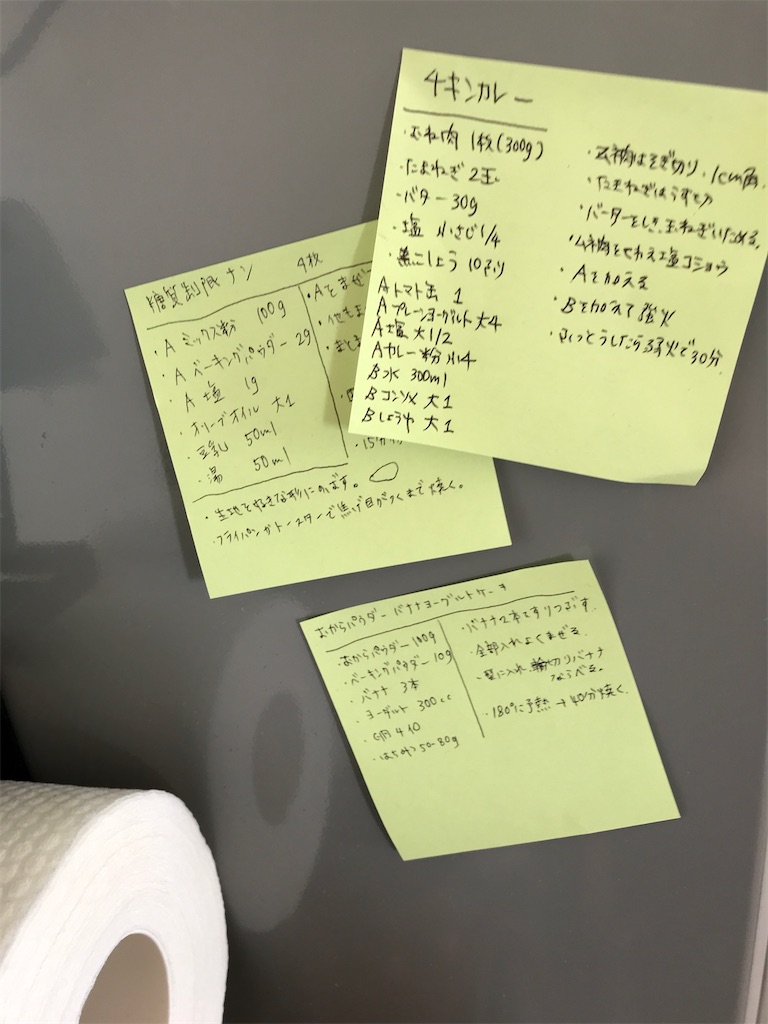 チキンカレー
・むね肉 1枚(300g)
・たまねぎ 2玉
・バター 30g
・塩 小さじ1/4
・黒こしょう 10ふり
Aトマト缶 1
Aプレーンヨーグルト大4
A塩 大1/2
Aカレー粉 小4
B水 300ml
Bコンソメ 大1
Bしょうゆ 大1
・ムネ肉はそぎ切り、1cm角、
・たまねぎはうす切り
・バーターをしき、玉ねぎいためる。
・ムネ肉をくわえ塩コショウ
・Aを加える
・Bを加えて強火
・ふっとうしたら弱火で30分。
糖質制限ナン 4枚
・A ミックス粉 100g
・A ベーキングパウダー 2g
・A 塩 1g
・オリーブオイル 大1
・豆乳 50ml
・湯 50ml
・Aをまぜ
・他も
・まと
・15分
・生地を好きな形にのばす。
・フライパンかトースターで焦げ目がつくまで焼く。
おからパウダーバナナヨーグルトケーキ
・おからパウダー 100g
・ベーキングパウダー 10g
・バナナ 3本
・ヨーグルト 300cc
・卵 4個
・はちみつ 50-80g
・バナナ2本をすりつぶす。
・全部入れよくまぜる。
・型に入れ 輪切りバナナ
ならべる。
・180°に予熱→40分焼く。